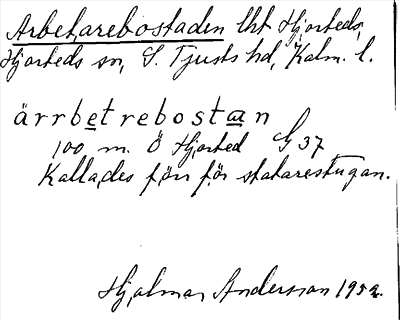 Arbetarebostaden lht Hjorteds,
Hjorteds sn, S. Tjusts hd, Kalm. l.
ärrbetrebostan
100 m. Ö Hjorted G 37
Kallades förr för statarestugan.
Hjalmar Andersson 1952.